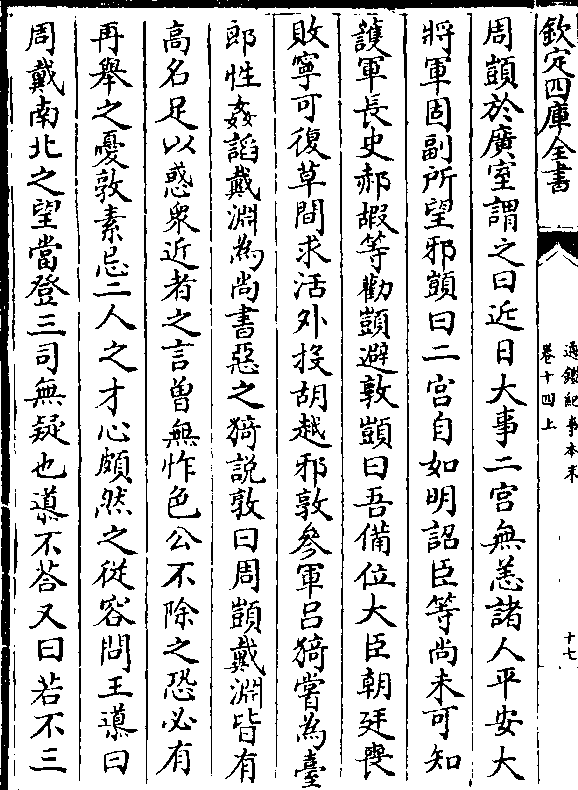 欽定四庫全書
通鑑紀事本末
卷十四上
十七
周顗於廣室謂之曰近日大事二宮無恙諸人平安大
將軍固副所望邪顗曰二宮自如明詔臣等尚未可知
護軍長史郝嘏等勸顗避敦顗曰吾備位大臣朝廷喪
敗寧可復草間求活外投胡越邪敦參軍呂猗嘗為臺
郎性姦諂戴淵為尚書惡之猗說敦曰周顗戴淵皆有
高名足以惑衆近者之言曾無怍色公不除之恐必有
再舉之憂敦素忌二人之才心頗然之從容問王導曰
周戴南北之望當登三司無疑也導不荅又曰若不三